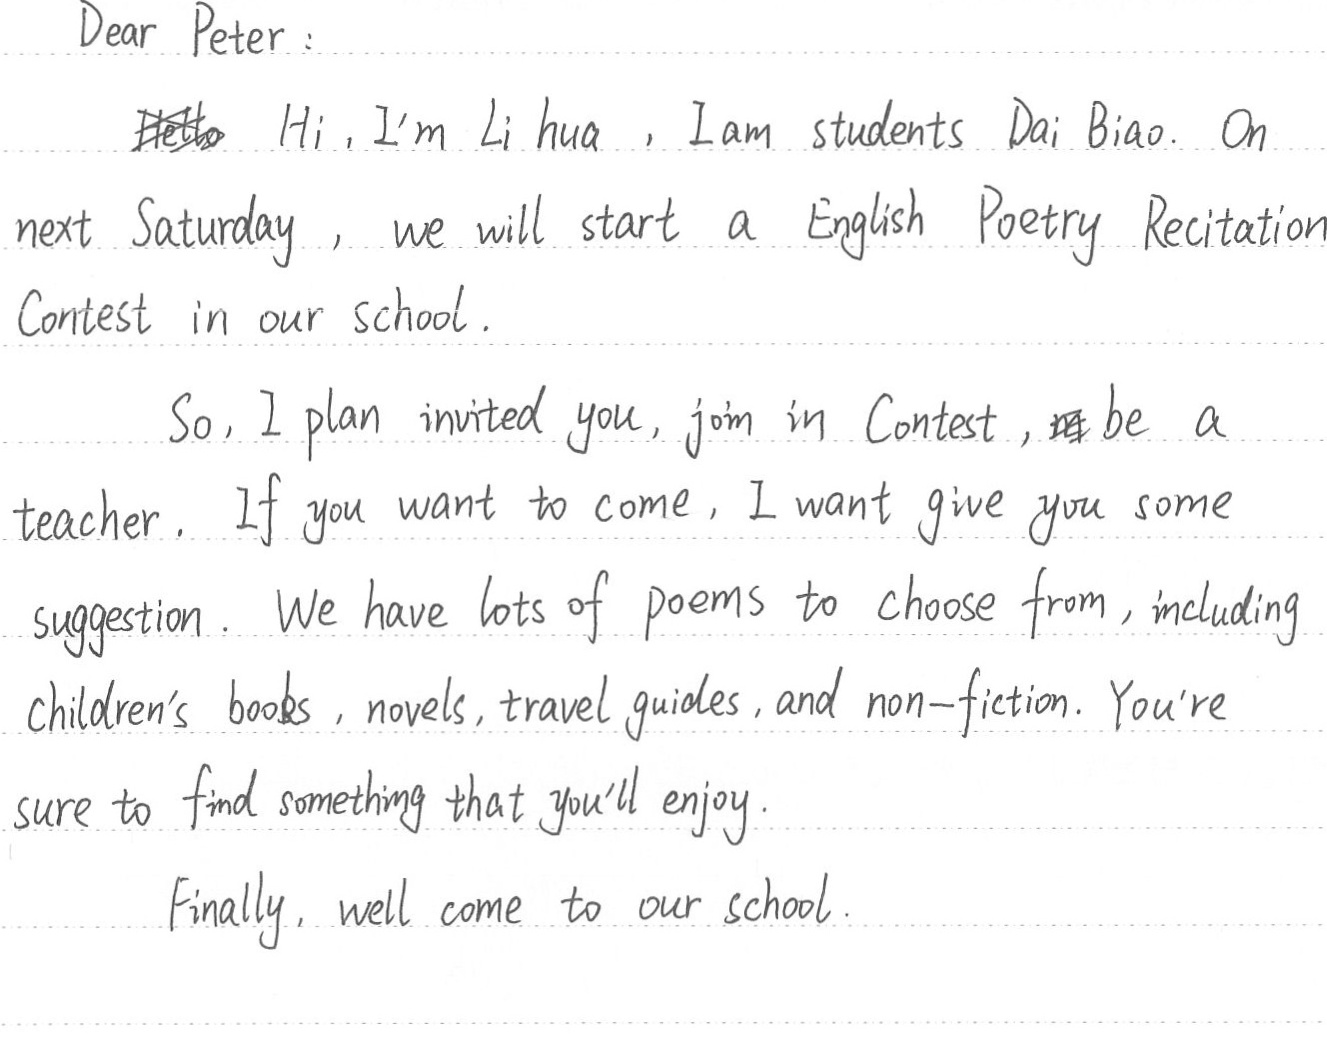 Dear Peter:
Hi, I'm Li hua, I am students Dai Biao. On
next Saturday, we will start a English Poetry Recitation
Contest in our school.
So, I plan invited you, join in Contest, be a
teacher. If you want to come, I want give you some
suggestion. We have lots of poems to choose from, including
children's books, novels, travel guides, and non-fiction. You're
sure to find something that you'll enjoy.
Finally, well come to our school.